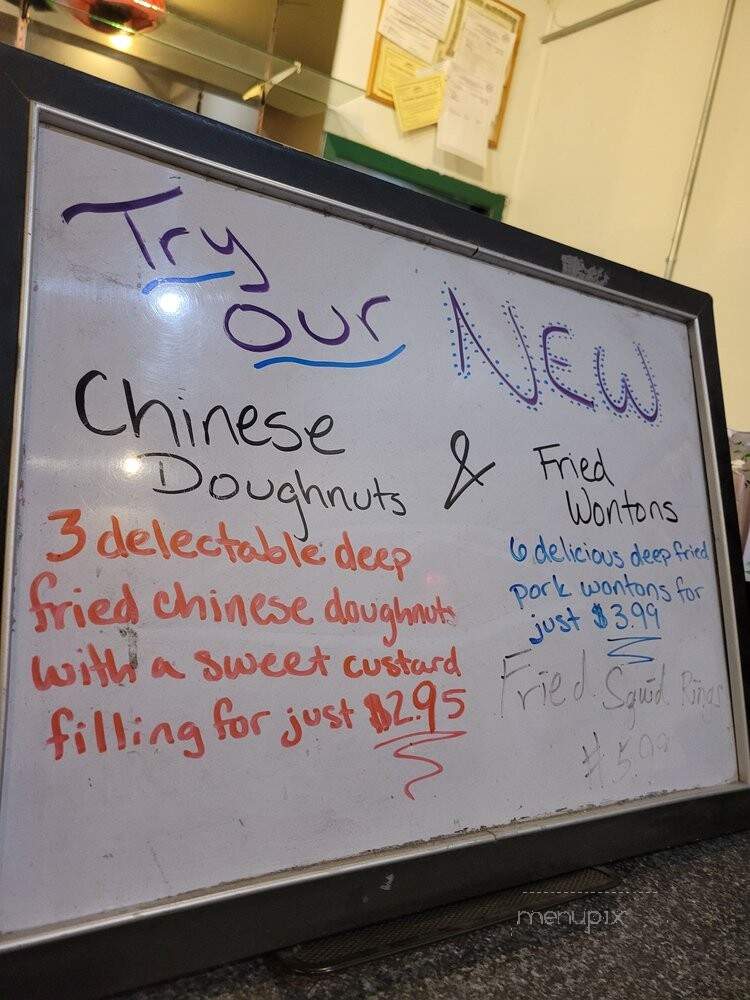 Try
our NEW
Chinese
Doughnuts
& Fried
Wontons
3 delectable deep
fried chinese doughnuts
with a sweet custard
filling for just $2.95
6 delicious deep fried
pork wontons for
just $3.99
Fried Squid Rings
$5.99
menupix